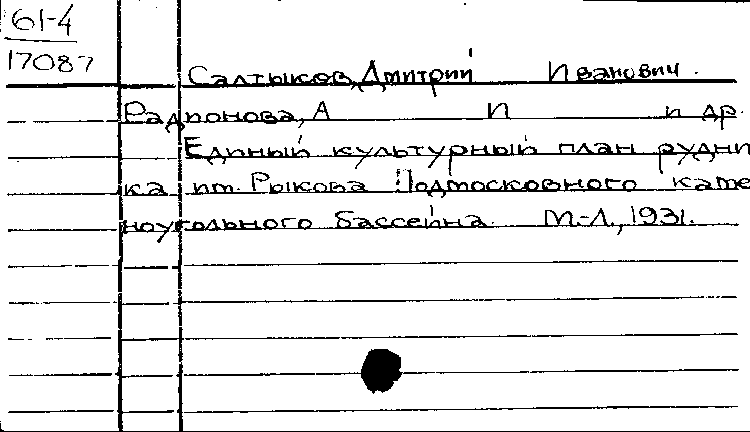 61-4
17087
Салтыков, Дмитрий Иванович.
Радионова, А И и др.
Единый культурный план рудни
ка им. Рыкова Подмосковного каме
ноугольного бассейна. М-Л., 1931.